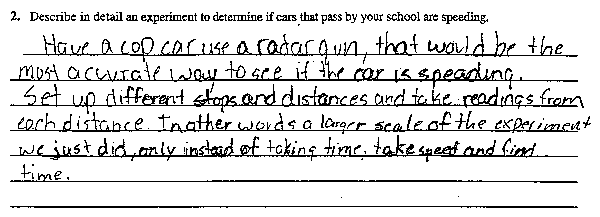 2. Describe in detail an experiment to determine if cars that pass by your school are speeding.
Have a cop car use a radar gun, that would be the
most accurate way to see if the car is speading.
Set up different stops and distances and take readings from
each distance. In other words a larger scale of the experiment
we just did, only instead of taking time, take speed and find
time.